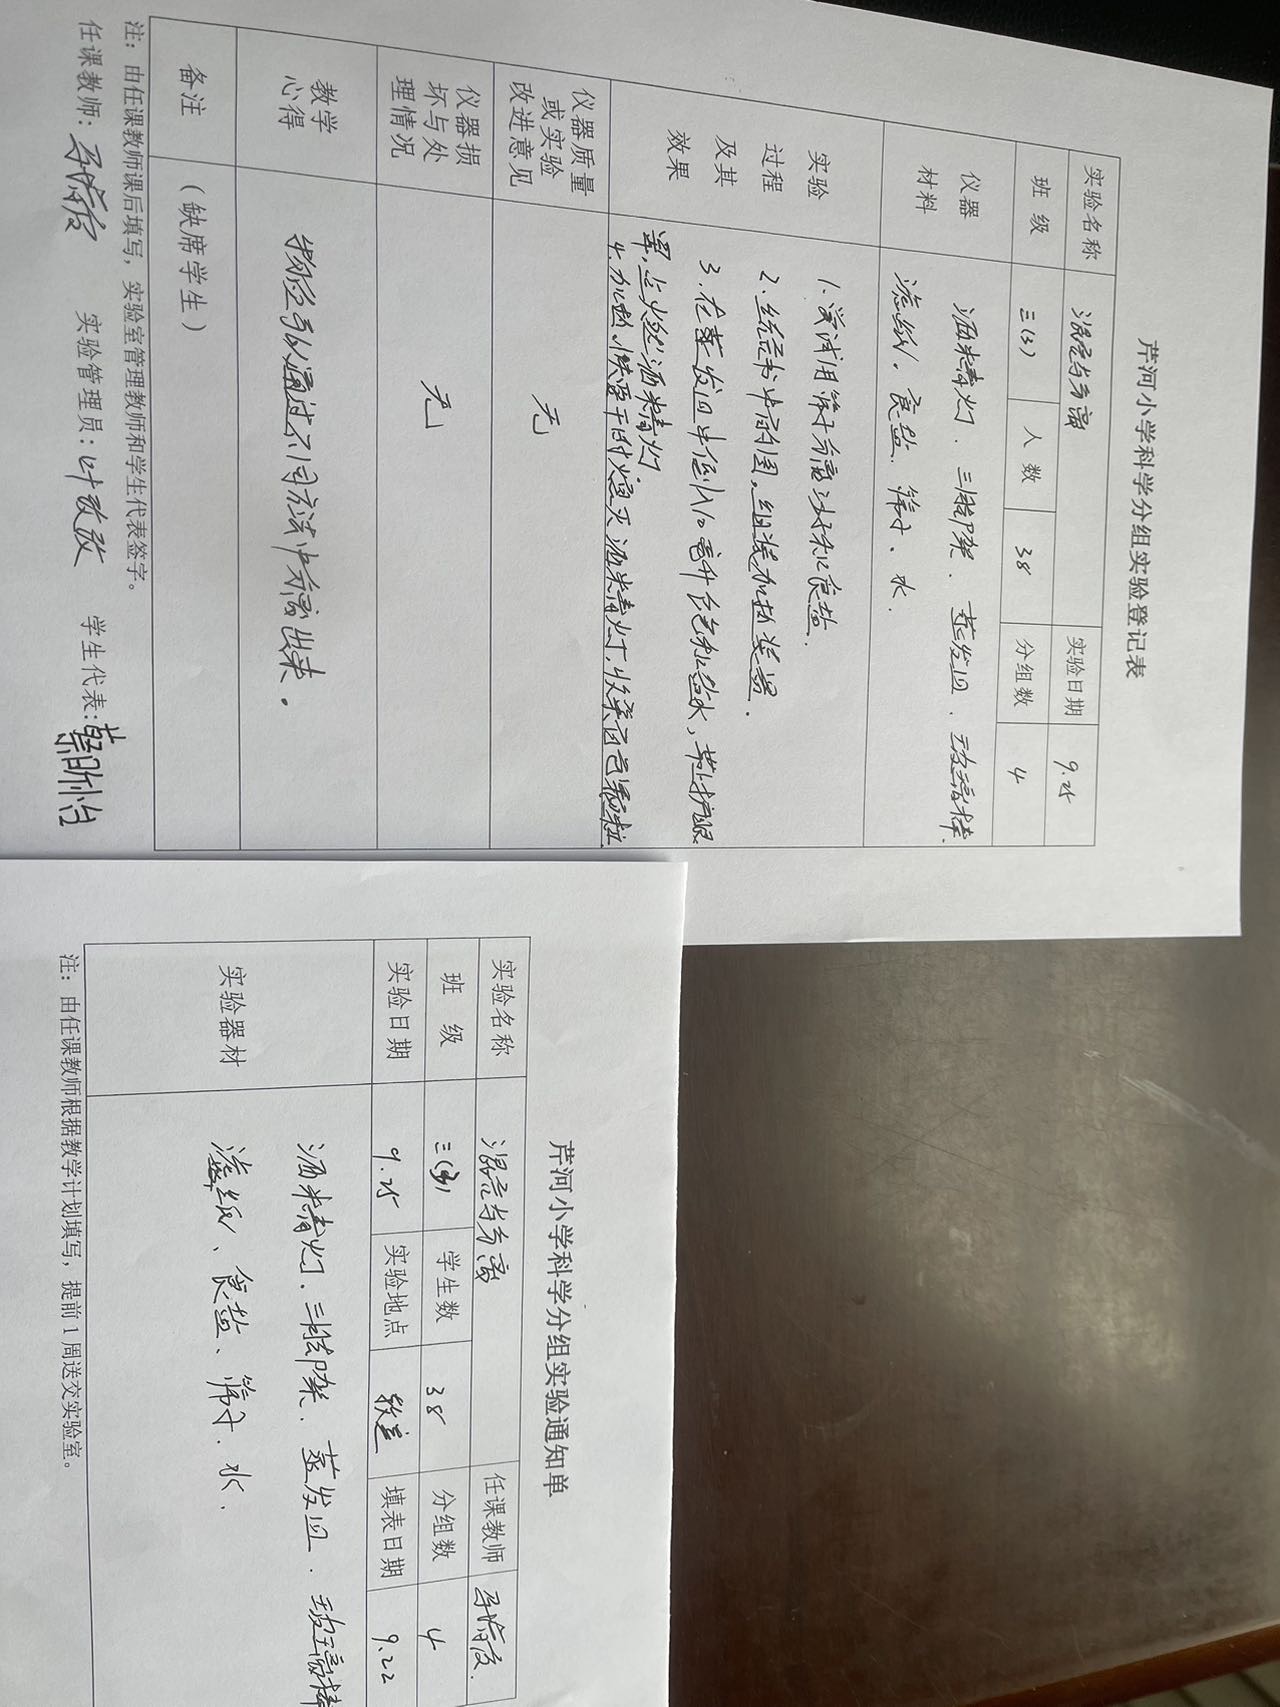 芹河小学科学分组实验登记表
实验名称 混合与分离 实验日期 9.25
班 级 三(3) 人 数 38 分组数 4
仪器材料
酒精灯、三脚架、蒸发皿、玻璃棒、
滤纸、食盐、筛子、水、
实验过程及其效果
1、尝试用筛子分离沙和食盐、
2、结合书中的图,组装加热装置、
3、在蒸发皿中倒入10毫升白色和盐水,带上护眼
罩,点燃酒精灯
4、加热、快要干时熄灭酒精灯,收集白色颗粒
仪器质量或实验改进意见 无
仪器损坏与处理情况 无
教学心得 物质可以通过不同方法中分离出来。
备注 (缺席学生)
注:由任课教师课后填写,实验室管理教师和学生代表签字。
任课教师: 实验管理员:叶改改 学生代表:
芹河小学科学分组实验通知单
实验名称 混合与分离 任课教师
班 级 三(3) 学生数 38 分组数 4
实验日期 9.25 实验地点 教室 填表日期 9.22
实验器材
酒精灯、三脚架、蒸发皿、玻璃棒
滤纸、食盐、筛子、水、
注:由任课教师根据教学计划填写,提前1周送交实验室。